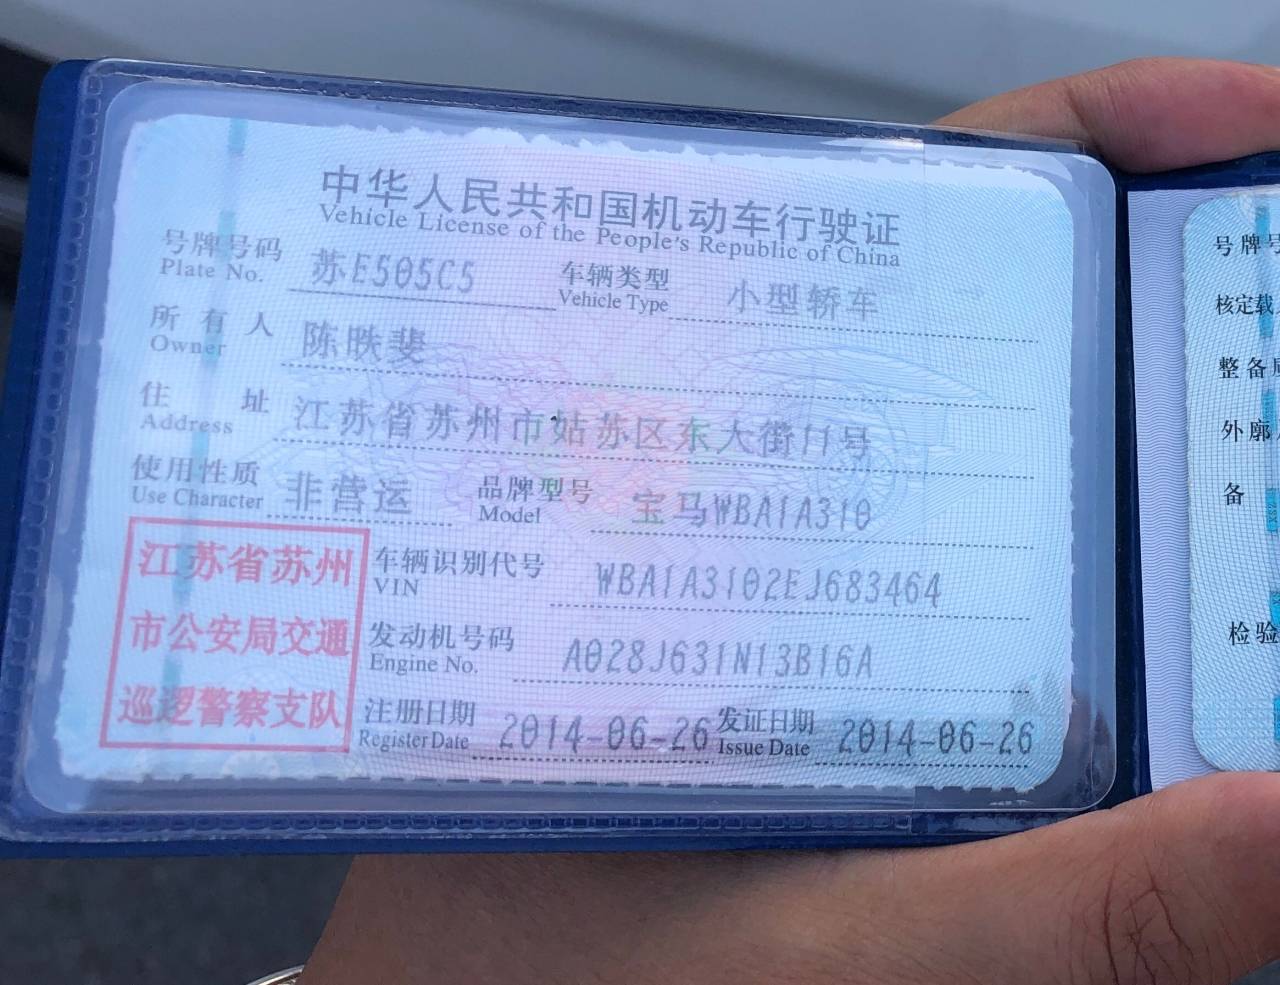 中华人民共和国机动车行驶证
Vehicle License of the People's Republic of China
号牌号码 苏E505C5 车辆类型 小型轿车
Plate No. Vehicle Type
所有人 陈昳斐
Owner
住址 江苏省苏州市姑苏区东大街11号
Address
使用性质 非营运 品牌型号 宝马WBA1A310
Use Character Model
江苏省苏州
市公安局交通
巡逻警察支队
车辆识别代号 WBA1A3102EJ683464
VIN
发动机号码 A028J631N13B16A
Engine No.
注册日期 2014-06-26 发证日期 2014-06-26
Register Date Issue Date
号牌号
核定载
整备
外廓
备
检验